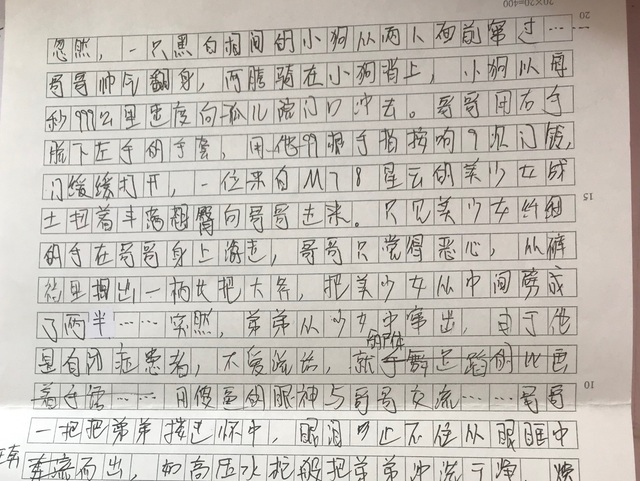 20×20=400
20
忽然，一只黑白相间的小狗从两人面前窜过……
哥哥帅气翻身，两腿骑在小狗背上，小狗以每
秒999公里速度向孤儿院门口冲去。哥哥用右手
脱下左手的手套，用他99根手指按响9次门铃，
门缓缓打开，一位来自M78星云的美少女战
15
士扭着丰满翘臀向哥哥走来。只见美少女纤细
的手在哥哥身上游走，哥哥只觉得恶心，从裤
裆里掏出一柄大斧，把美少女从中间劈成
了两半……突然，弟弟从少女中窜出，由于他
的尸体
是自闭症患者，不爱说话，就手舞足蹈的比画
10
着手语……用傻逼的眼神与哥哥交流……哥哥
一把把弟弟搂进怀中，眼泪止不住从眼眶中
而出，如高压水枪般把弟弟冲洗干净，